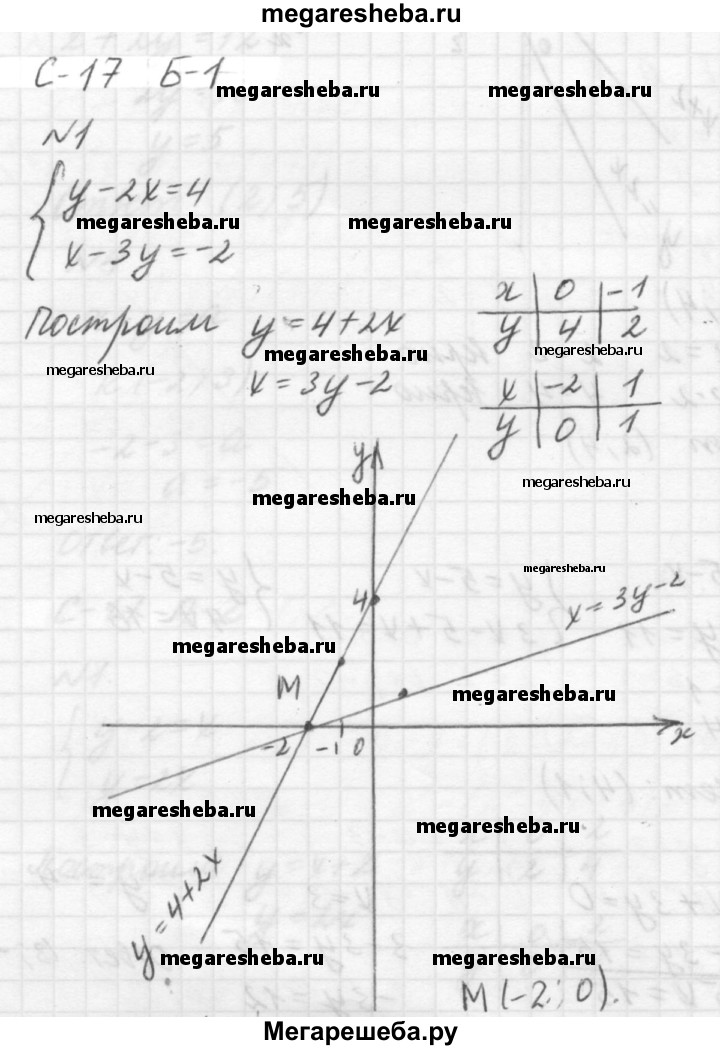 megaresheba.ru
С-17 Б-1
megaresheba.ru megaresheba.ru
№1
y-2x=4
megaresheba.ru megaresheba.ru
x-3y=-2
Построим y=4+2x
x 0 -1
y 4 2
megaresheba.ru megaresheba.ru
megaresheba.ru
x=3y-2
x -2 1
y 0 1
y
megaresheba.ru
megaresheba.ru
megaresheba.ru
megaresheba.ru
4
x=3y-2
megaresheba.ru
M
megaresheba.ru
-2 -1 0 x
megaresheba.ru
megaresheba.ru
y=4+2x
megaresheba.ru megaresheba.ru
M(-2; 0).
Мегарешеба.ру